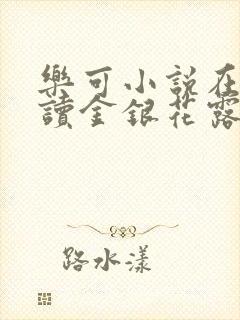 樂可小說在
讀金銀花露
路水漾